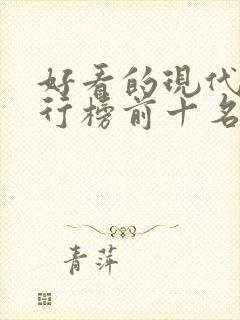 好看的现代
行榜前十名
青萍